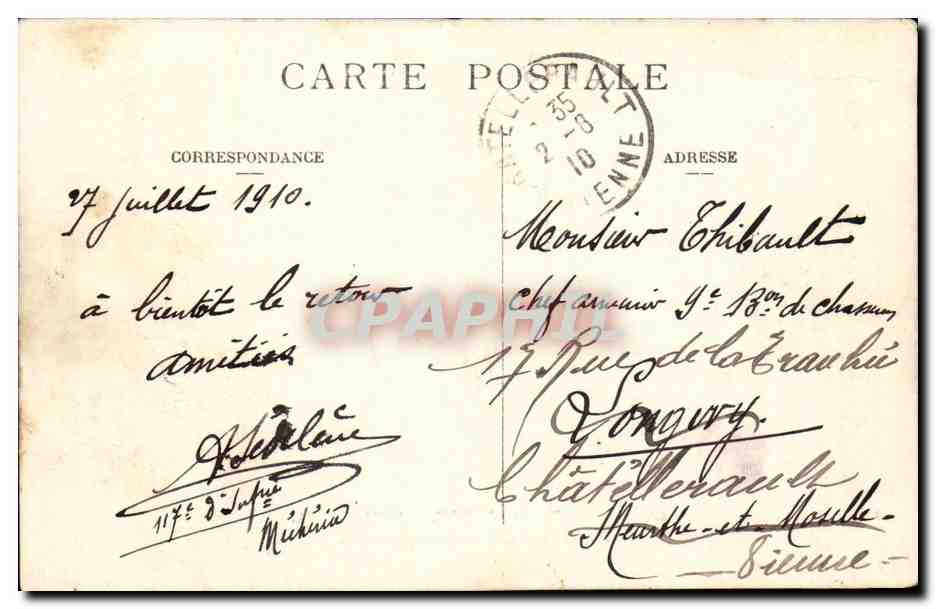 CARTE POSTALE
CORRESPONDANCE
27 Juillet 1910.
à bientôt le retour
amitiés
117e d'Infrie
CPAPHIL
CHATELLERAULT
35
2-8
10
VIENNE
ADRESSE
Monsieur Thibault
Chef armurier 9e Bon de chasseurs
17 Rue de la Tranchée
Longwy.
Châtellerault
Meurthe-et-Moselle-
Vienne-